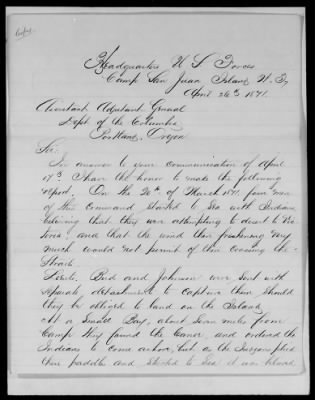 Copy.
Headquarters U S Forces
Camp San Juan Island W. Ty
April 26th 1871.
Assistant Adjutant General
Dept of the Columbia
Portland, Oregon
Sir:
In answer to your communication of April
17th I have the honor to make the following
report. On the 20th of March 1871, four men
of this Command started to Sea with Indians
believing that they were attempting to desert to Vic-
toria, and that the wind then freshening very
much would not permit of them crossing the
Straits.
Lieuts. Bird and Johnson were sent with
separate detachments to capture them should
they be obliged to land on the Island.
At a Small Bay, about seven miles from
Camp they found the Canoe, and ordered the
Indians to come ashore, but as the Indians plied
their paddles and started to Sea it was believed